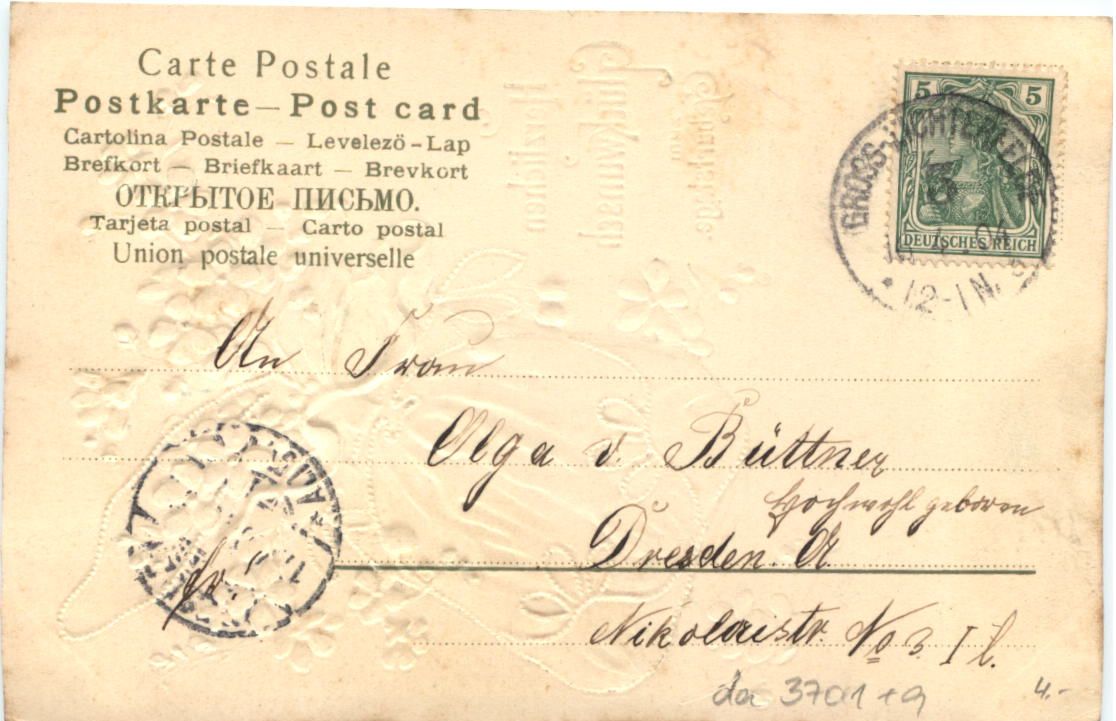 Carte Postale
Postkarte — Post card
Cartolina Postale — Levelezö-Lap
Brefkort — Briefkaart — Brevkort
ОТКРЫТОЕ ПИСЬМО.
Tarjeta postal — Carto postal
Union postale universelle
5 5
DEUTSCHES REICH
GROSS-LICHTERFELDE
3
04
* 12-1 N.
Herzlichen
Glückwunsch
zum
Geburtstage
An Frau
Olga v. Büttner
Hochwohlgeboren
Dresden A
Nikolaistr. No 3 I l.
da 3701+9
4.-